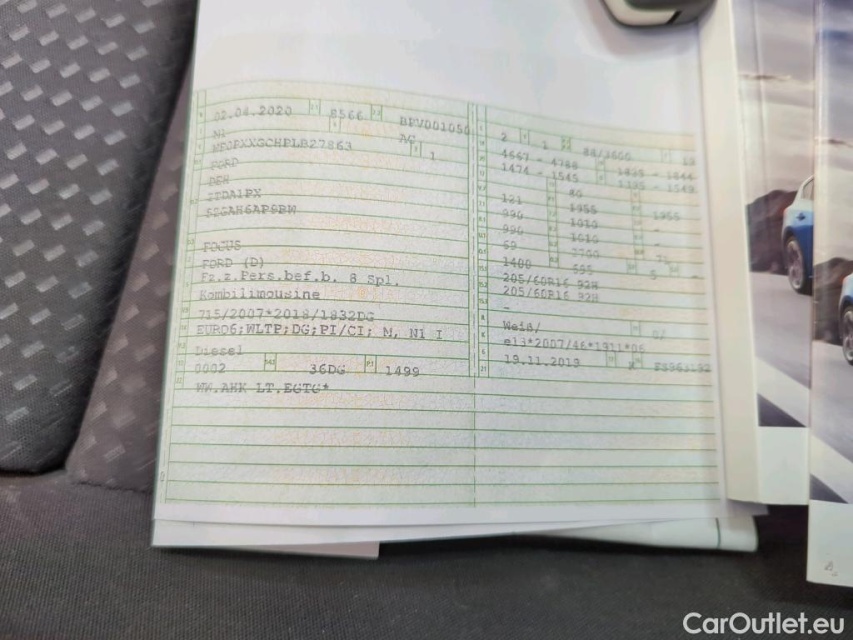 02.04.2020 8566 BPV001050
N1 AC
WF0PXXGCHPLB27863 1
FORD
DEH
FOCUS
FORD (D)
Fz.z.Pers.bef.b. 8 Spl.
Kombilimousine
715/2007*2018/1832DG
EURO6;WLTP;DG;PI/CI; M, N1 I
Diesel
0002 36DG 1499
WW.AHK LT.EGTG*
2 1 88/3600
4667 - 4788
1474 - 1545
121 80
990 1955 1955
990 1010
1010
69
1400 595 5 -
205/60R16 92H
205/60R16 92H
Weiß/ 0/
e13*2007/46*1911*06
19.11.2019 K
CarOutlet.eu